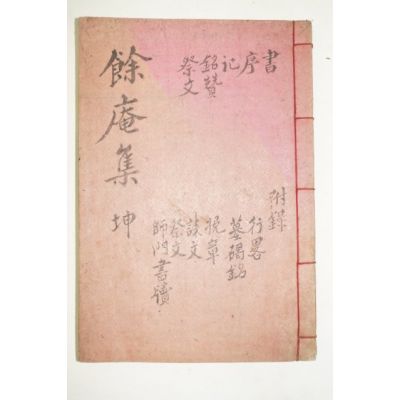 書
序
記
銘贊
祭文
附錄
行畧
墓碣銘
挽章
誄文
祭文
師門書牘
餘庵集 坤